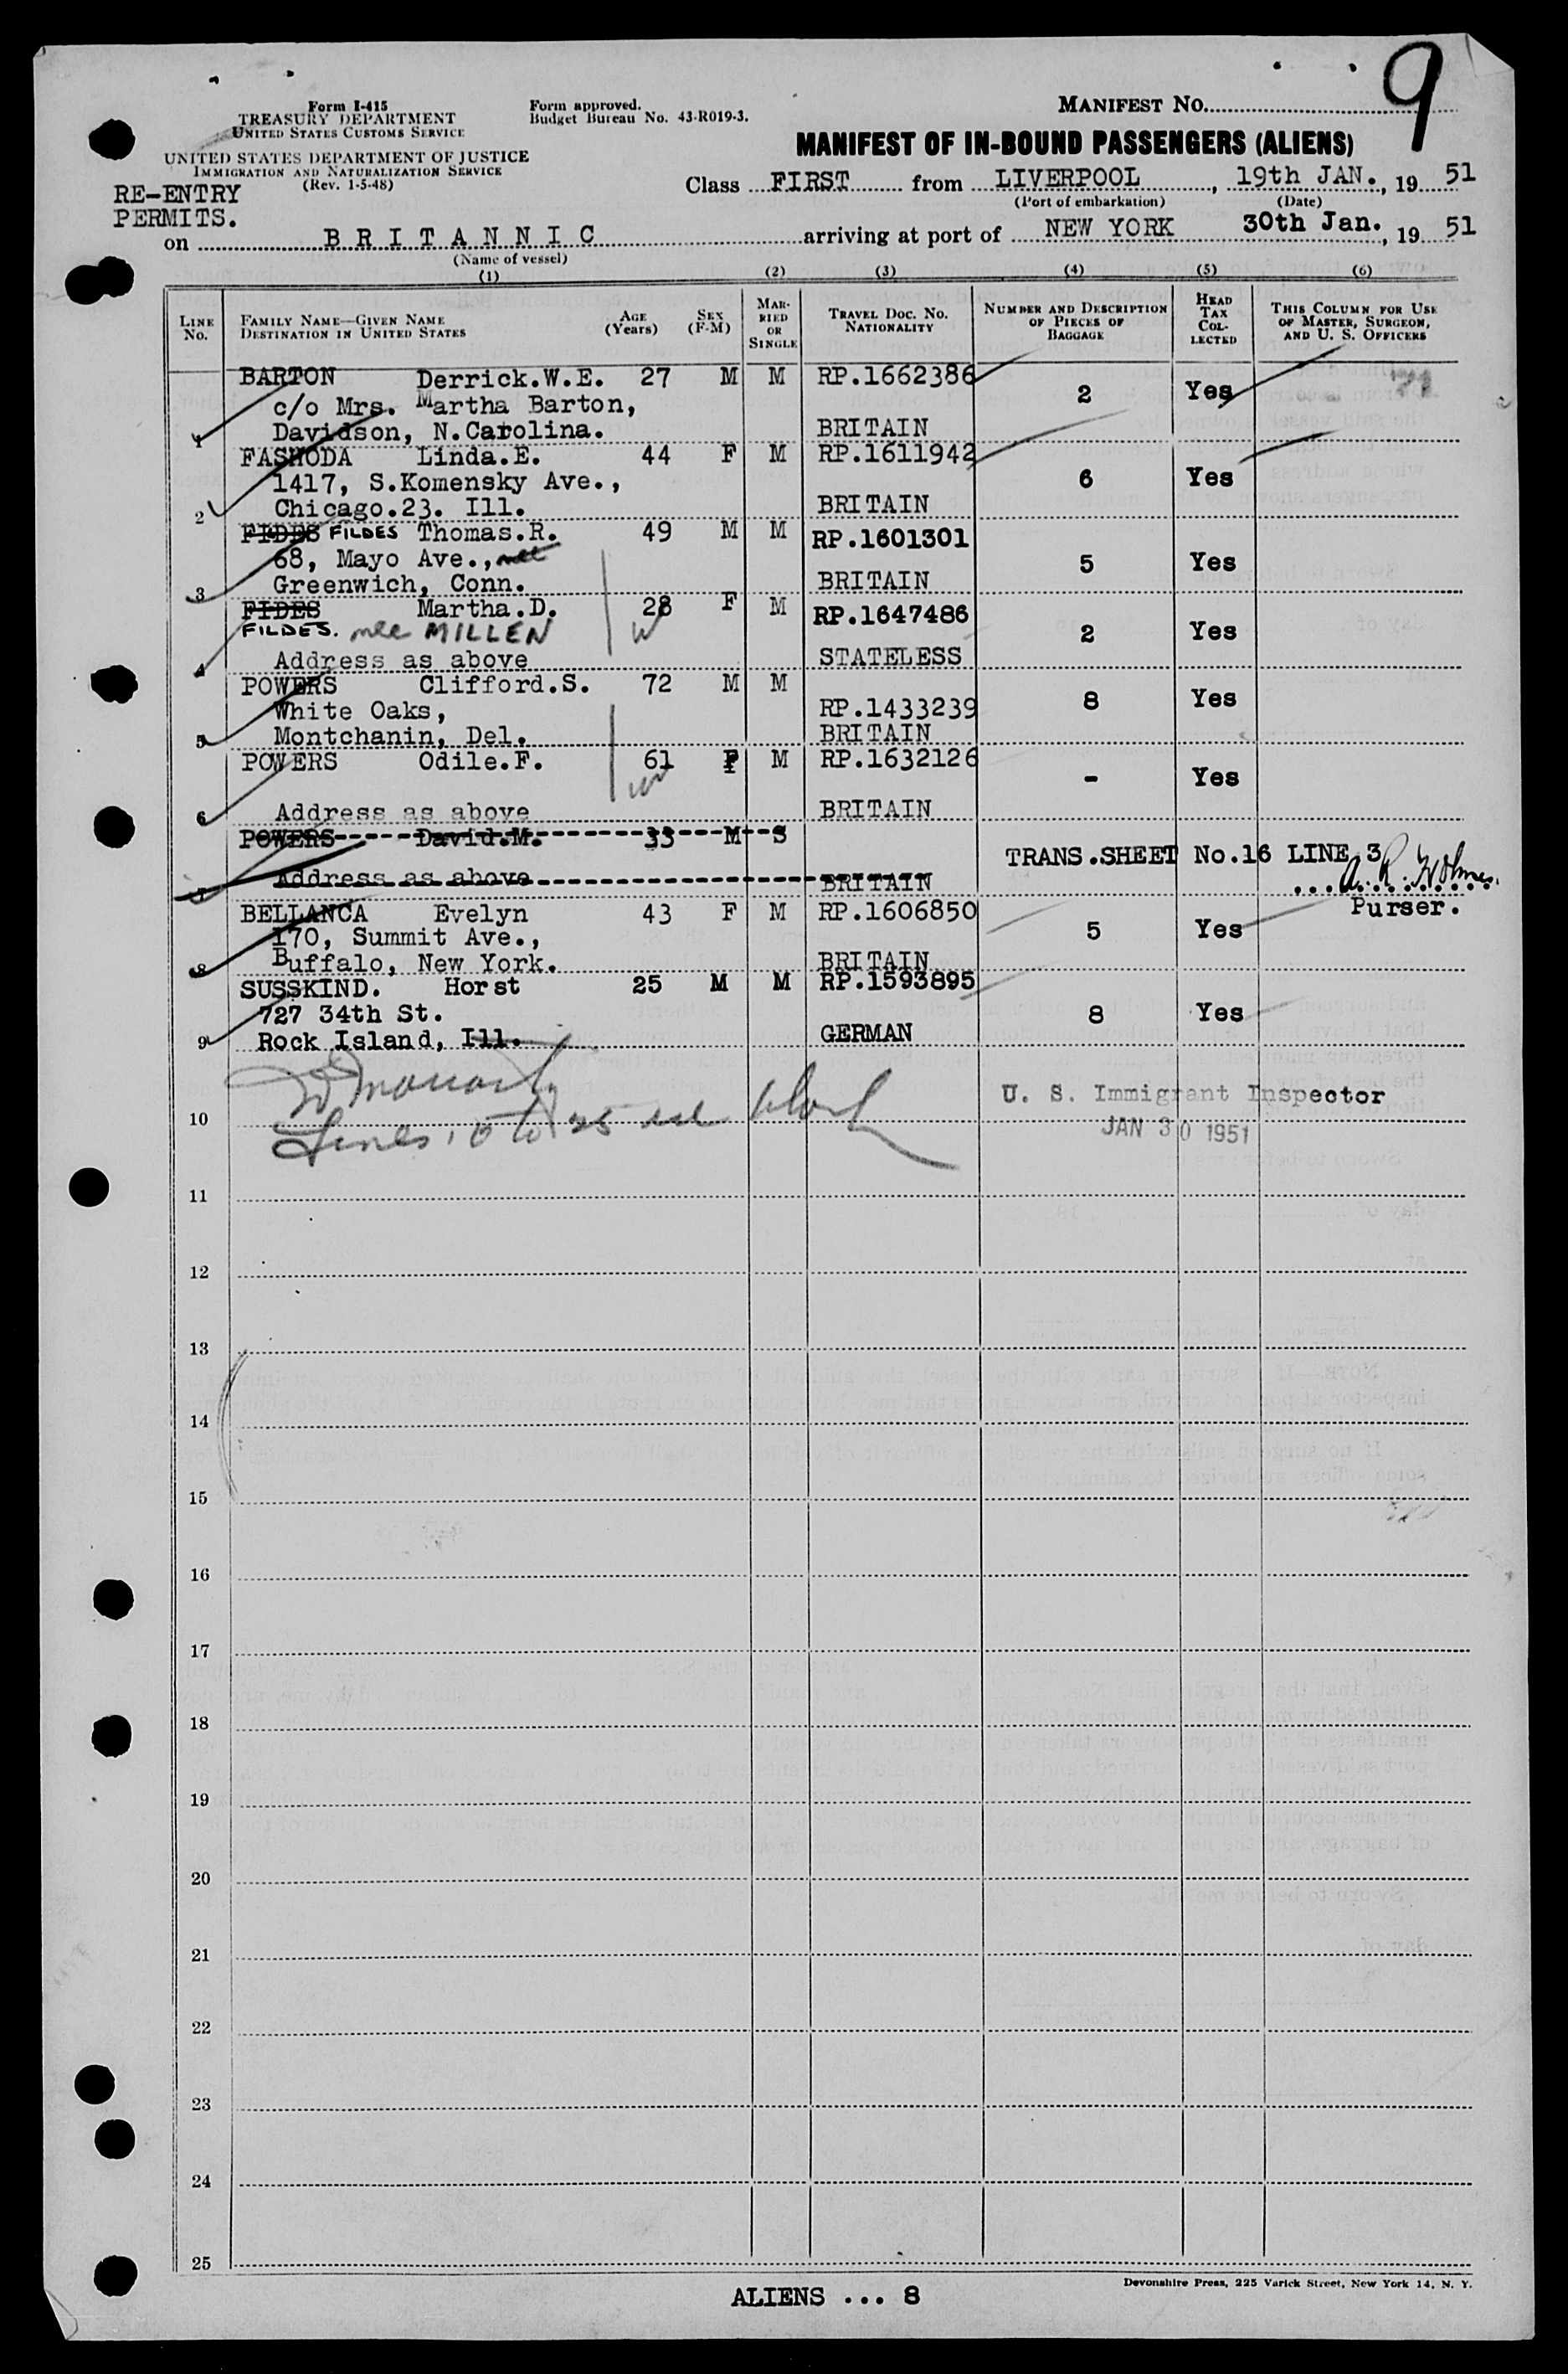 9
Form I-415
TREASURY DEPARTMENT
UNITED STATES CUSTOMS SERVICE
UNITED STATES DEPARTMENT OF JUSTICE
IMMIGRATION AND NATURALIZATION SERVICE
(Rev. 1-5-48)
Form approved.
Budget Bureau No. 43-R019-3.
MANIFEST NO.
MANIFEST OF IN-BOUND PASSENGERS (ALIENS)
Class FIRST from LIVERPOOL, 19th JAN., 19 51
(Port of embarkation) (Date)
RE-ENTRY
PERMITS.
on B R I T A N N I C arriving at port of NEW YORK 30th Jan., 19 51
(Name of vessel)
(1) (2) (3) (4) (5) (6)
LINE NO. FAMILY NAME—GIVEN NAME DESTINATION IN UNITED STATES AGE (Years) SEX (F-M) MARRIED OR SINGLE TRAVEL DOC. NO. NATIONALITY NUMBER AND DESCRIPTION OF PIECES OF BAGGAGE HEAD TAX COLLECTED THIS COLUMN FOR USE OF MASTER, SURGEON, AND U. S. OFFICERS
BARTON Derrick.W.E. 27 M M RP.1662386
c/o Mrs. Martha Barton, 2 Yes
1 Davidson, N.Carolina. BRITAIN
FASHODA Linda.E. 44 F M RP.1611942
1417, S.Komensky Ave., 6 Yes
2 Chicago.23. Ill. BRITAIN
FIDES FILDES Thomas.R. 49 M M RP.1601301
68, Mayo Ave., nee 5 Yes
3 Greenwich, Conn. BRITAIN
FIDES Martha.D. 28 F M RP.1647486
FILDES. nee MILLEN W 2 Yes
4 Address as above STATELESS
POWERS Clifford.S. 72 M M
White Oaks, RP.1433239 8 Yes
5 Montchanin, Del. BRITAIN
POWERS Odile.F. 61 F M RP.1632126
W - Yes
6 Address as above BRITAIN
POWERS David.M. 33 M S
TRANS.SHEET No.16 LINE 3
7 Address as above BRITAIN A. R. Holmes.
Purser.
BELLANCA Evelyn 43 F M RP.1606850
170, Summit Ave., 5 Yes
8 Buffalo, New York. BRITAIN
SUSSKIND. Horst 25 M M RP.1593895
727 34th St. 8 Yes
9 Rock Island, Ill. GERMAN
U. S. Immigrant Inspector
10 Lines 10 to 25 incl blank JAN 30 1951
11
12
13
14
15
16
17
18
19
20
21
22
23
24
25
Devonshire Press, 225 Varick Street, New York 14, N. Y.
ALIENS ... 8